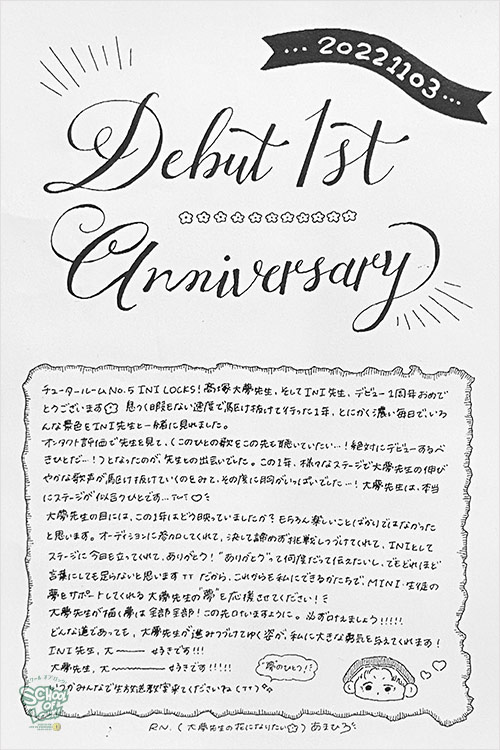 ...20221103...
Debut 1st
Anniversary
チュータールームNo.5 INI LOCKS! 髙塚大夢先生、そしてINI先生、デビュー1周年おめで
とうございます 息つく暇もない速度で駆け抜けて行った1年、とにかく濃い毎日で、いろ
んな景色をINI先生と一緒に見れました。
オンタクト評価で先生を見て、(このひとの歌をこの先も聴いていたい…!絶対にデビューするべ
きひとだ…!)となったのが、先生との出会いでした。この1年、様々なステージで大夢先生の伸び
やかな歌声が駆け抜けていくのをみて、その度に胸がいっぱいでした…!大夢先生は、本当
にステージが似合うひとです…TuT♡
大夢先生の目には、この1年はどう映っていましたか?もちろん楽しいことばかりではなかった
と思います。オーディションに参加してくれて、決して諦めず挑戦しつづけてくれて、INIとして
ステージに今日も立ってくれて、ありがとう!"ありがとう"って何度だって伝えたいし、でもどれほど
言葉にしても足らないと思いますTT だから、これからも私にできるかたちで、MINI・生徒の
夢をサポートしてくれる大夢先生の"夢"を応援させてください!
大夢先生が描く夢は全部全部!この先も叶いますように。必ず叶えましょう!!!!!
どんな道であっても、大夢先生が進みつづけてゆく姿が、私に大きな勇気を与えてくれます!
INI先生、大――好きです!!!
大夢先生、大――――好きです!!!!!
いつかみんなで生放送教室来てくださいね(TT)
"夢のひとり!"
R.N.(大夢先生の花になりたい)あまひろ
SCHOOL OF LOCK!